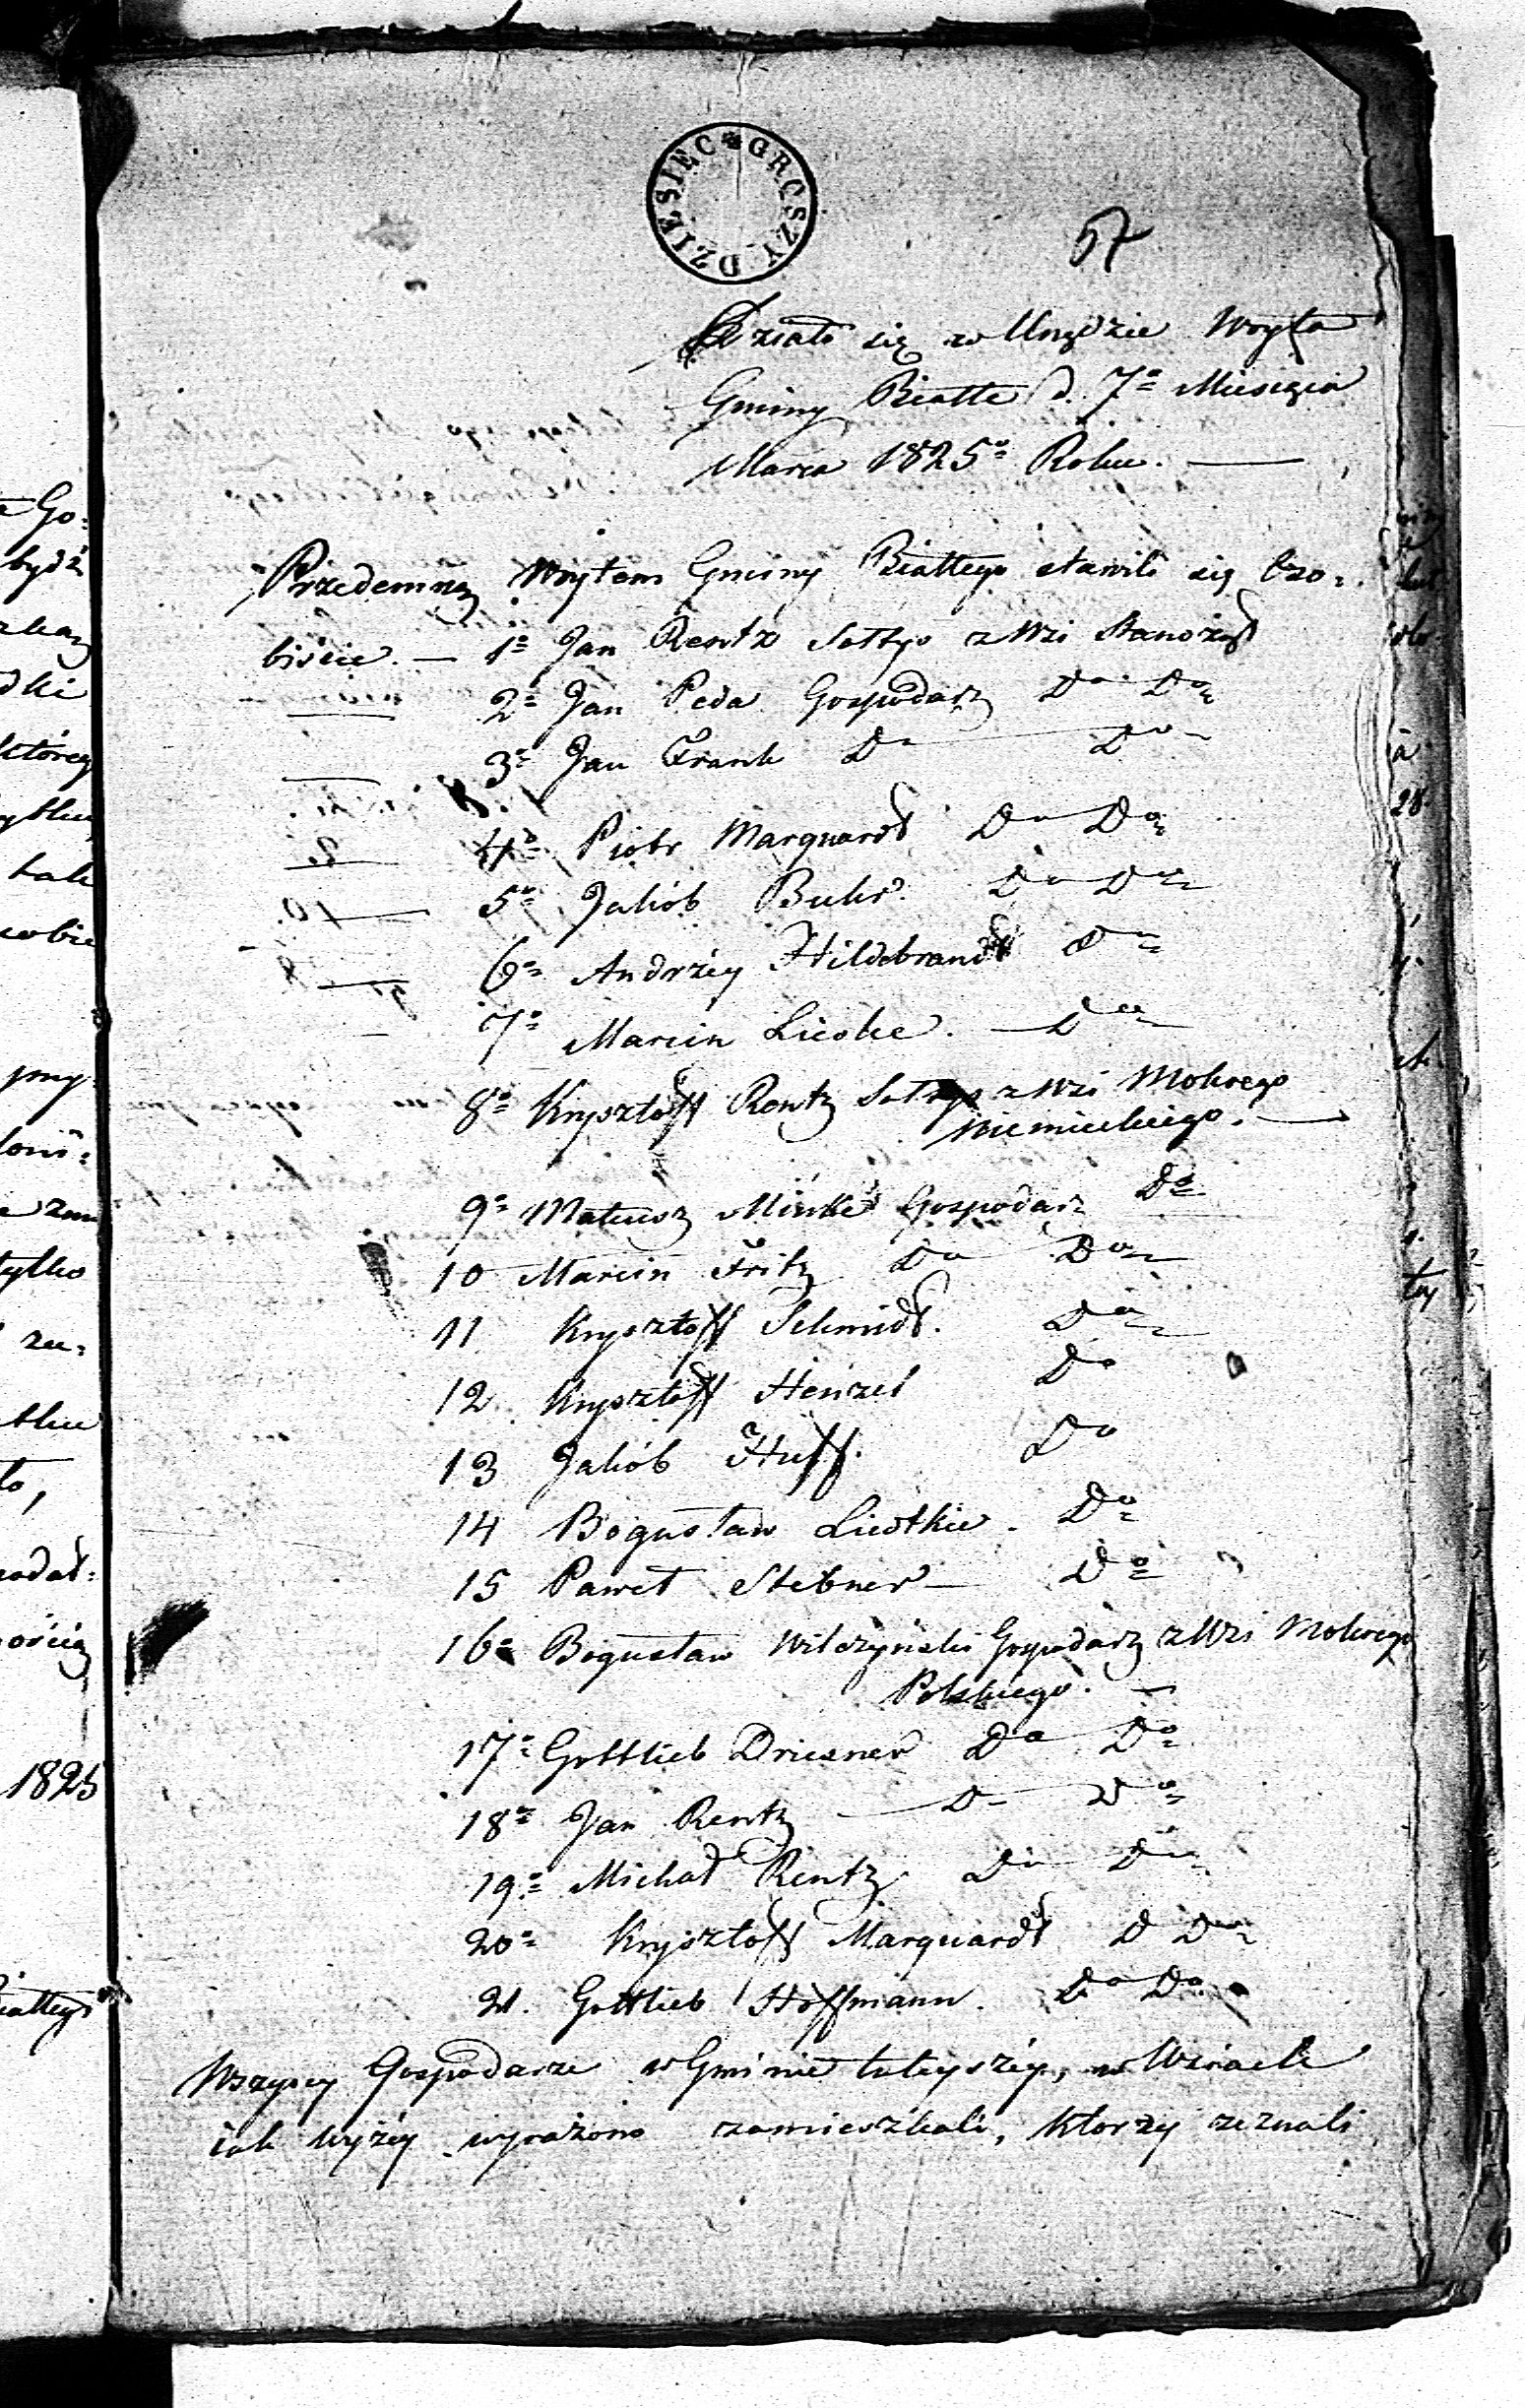 DZIESIĘC GROSZY
57
Działo się w Urzędzie Woyta
Gminy Białłe d. 7º Miesiąca
Marca 1825º Roku.
Przedemną Woytem Gminy Białłego stawili się Oso=
biście. — 1º Jan Rentz Sołtys z Wsi Stanożąt
2º Jan Peda Gospodarz Dº Dº
3º Jan Frank Dº Dº
4º Piotr Marquardt Dº Dº
5º Jakób Buhr. Dº Dº
6º Andrzéy Hildebrandt Dº
7º Marcin Lieske. — Dº
8º Krysztoff Rentz Sołtys z Wsi Mokrego
Niemieckiego. —
9º Mateusz Minke Gospodarz Dº
10 Marcin Fritz Dº Dº
11 Krysztoff Schmidt. Dº
12 Krysztoff Henzel Dº
13 Jakób Huff. Dº
14 Bogusław Liedtkie. Dº
15 Paweł Stebner — Dº
16º Bogusław Wilczyński Gospodarz z Wsi Mokrego
Polskiego. —
17º Gottlieb Driesner Dº Dº
18º Jan Rentz — Dº Dº
19º Michał Rentz Dº Dº
20º Krysztoff Marquardt D Dº
21. Gottlieb Hoffmann. Dº Dº
Wszyscy Gospodarze w Gminie tuteyszéy, w Wsiach
iak wyżéy wyrażono zamieszkali, którzy zeznali